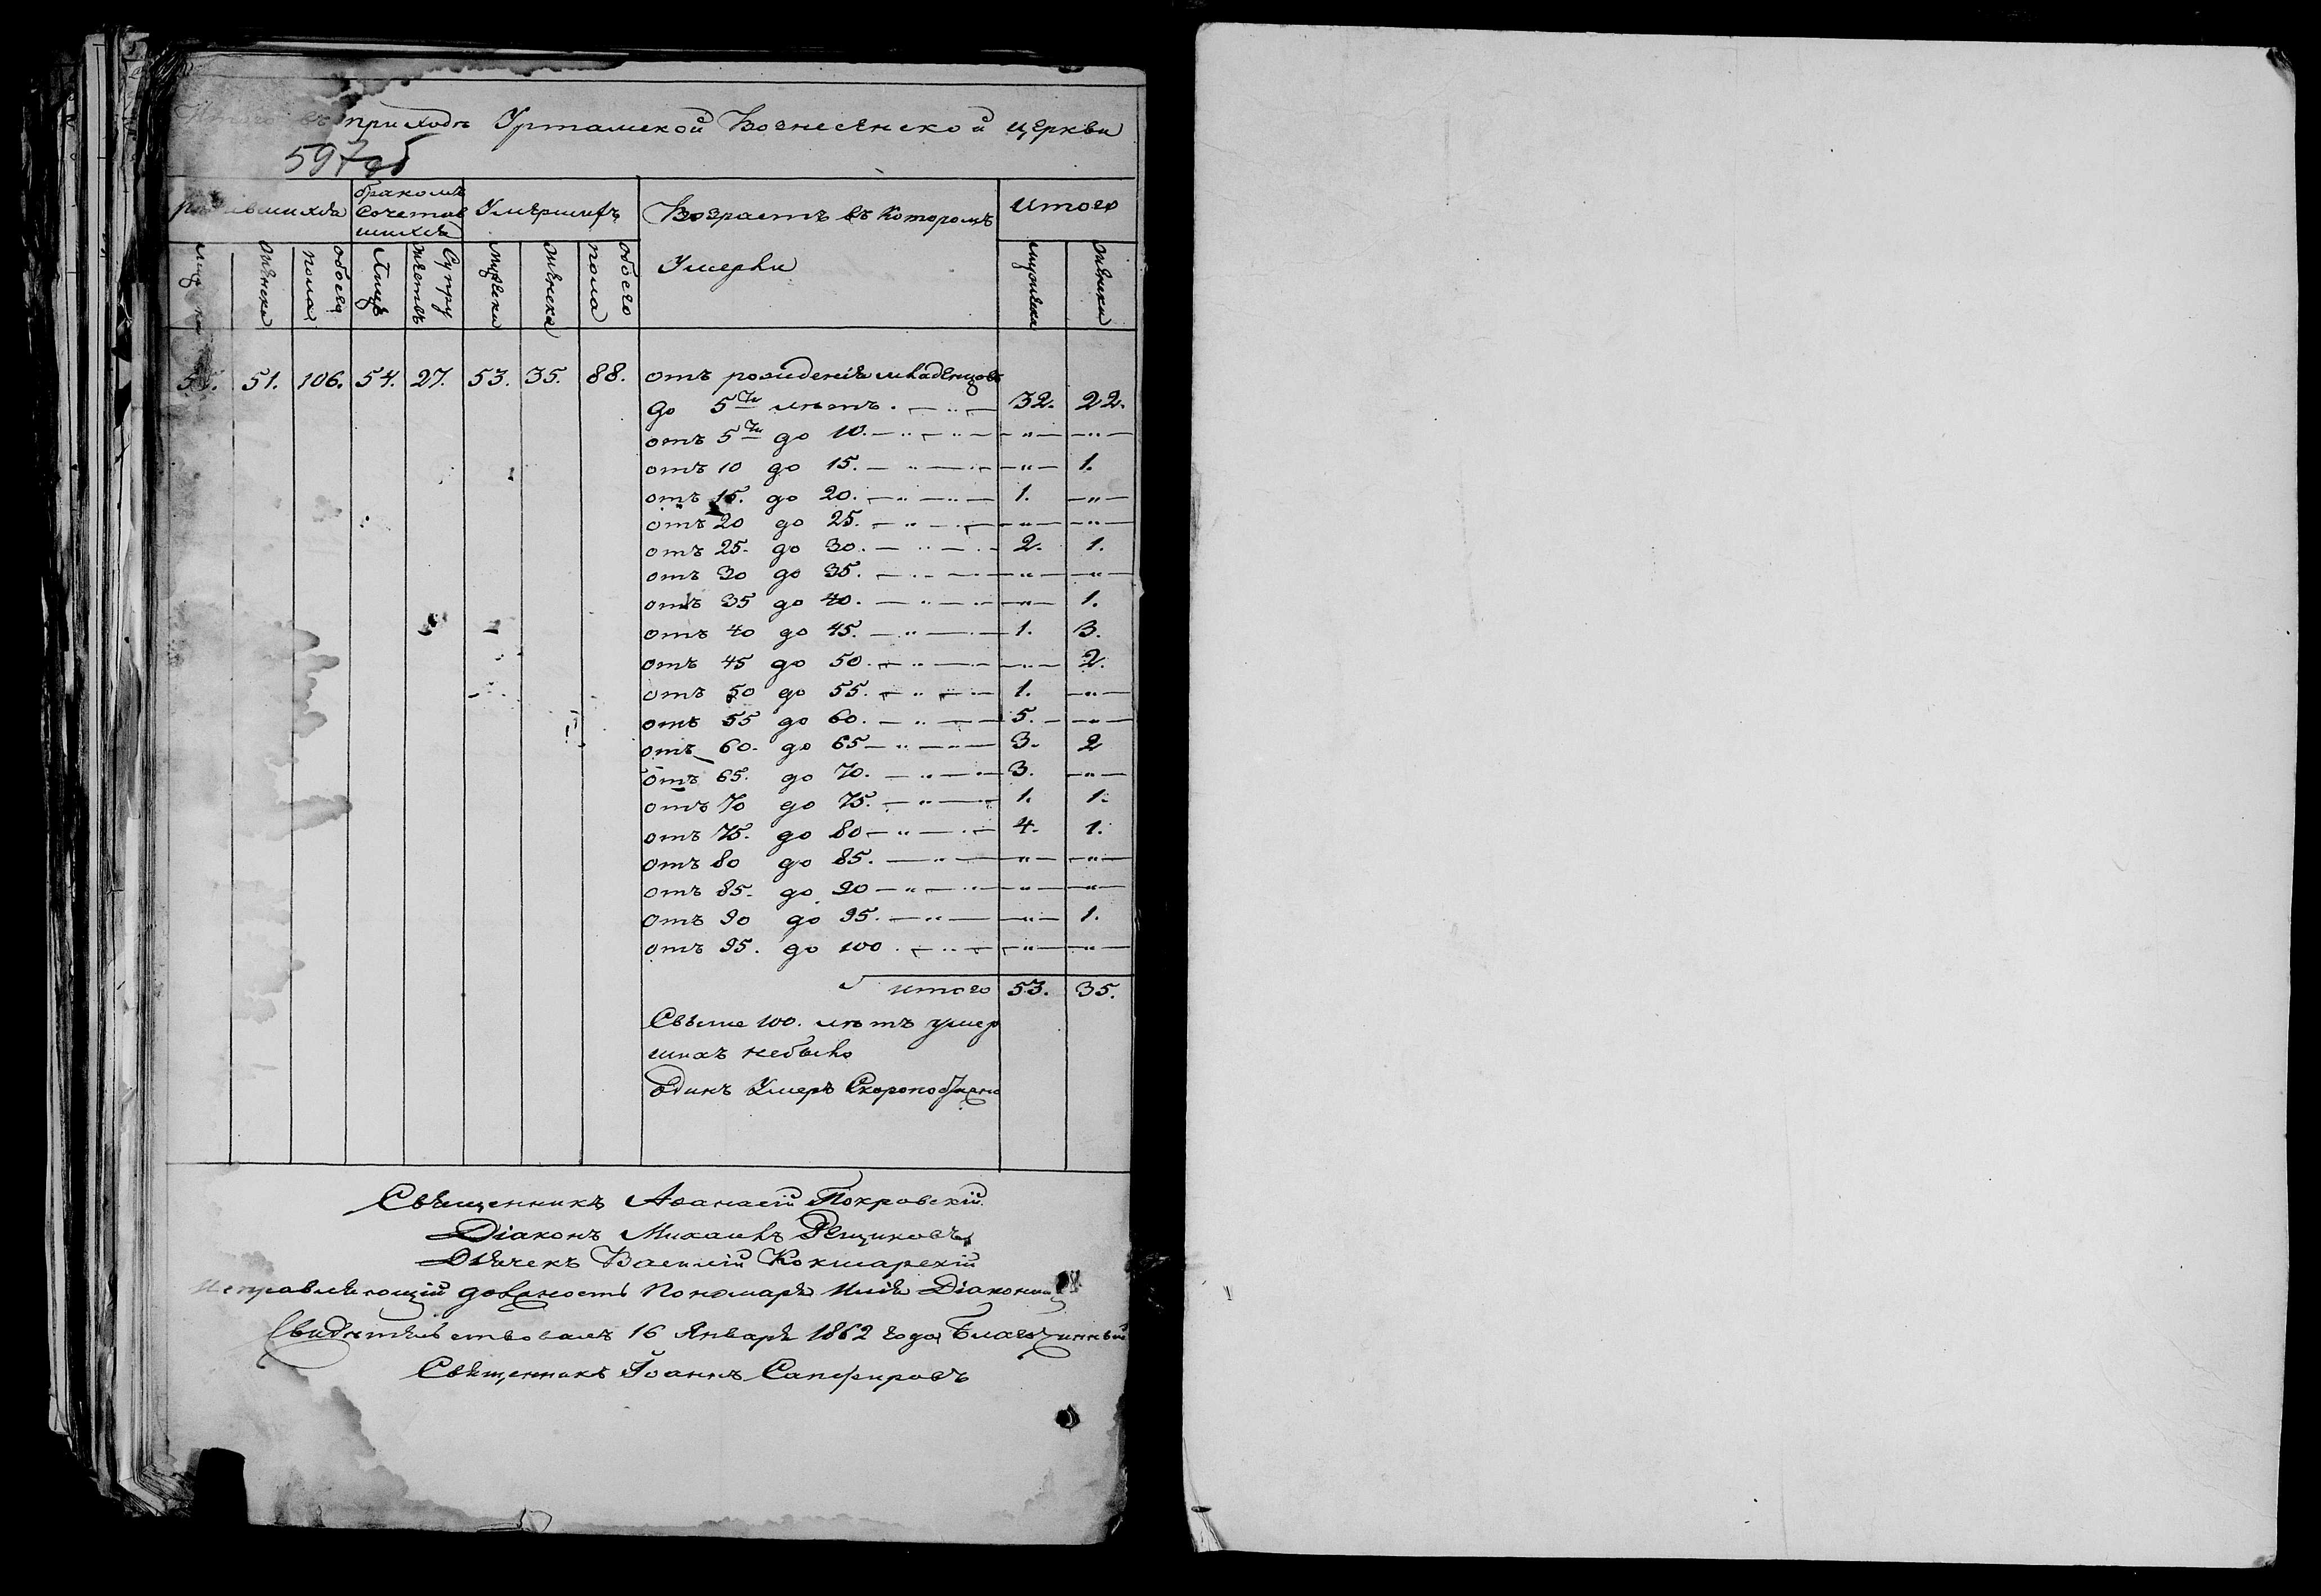 Итого въ приходѣ Уртамской Вознесенской церкви
597об
родившихся бракомъ Умершихъ Возрастъ въ которомъ Итого
сочетав
шихся
Умерли
муж ка женска обоего пола Лицъ Супружествъ мужеска женска обоего пола мужеска женска
51. 106. 54. 27. 53. 35. 88. отъ рожденія младенцовъ
до 5ти лѣтъ. — „ — 32. 22.
отъ 5ти до 10. — „ — „ — „ — — „ —
отъ 10 до 15. — „ — „ — — „ — 1.
отъ 15. до 20. — „ — „ — 1. — „ —
отъ 20 до 25. — „ — „ — — „ — — „ —
отъ 25. до 30. — „ — „ — 2. 1.
отъ 30 до 35. — „ — „ — — „ — — „ —
отъ 35 до 40. — „ — „ — — „ — 1.
отъ 40 до 45. — „ — „ — 1. 3.
отъ 45 до 50. — „ — „ — — „ — 2.
отъ 50 до 55. — „ — „ — 1. — „ —
отъ 55 до 60. — „ — „ — 5. — — „ —
отъ 60. до 65 — „ — „ — 3. 2
отъ 65. до 70. — „ — „ — 3. — „ —
отъ 70 до 75. — „ — „ — 1. 1.
отъ 75. до 80 — „ — „ — 4. 1.
отъ 80 до 85. — „ — — „ — — „ —
отъ 85. до 90 — „ — „ — — „ — — „ —
отъ 90 до 95. — „ — — „ — 1.
отъ 95. до 100. — „ — — „ — — „ —
итого 53. 35.
Свыше 100. лѣтъ умер
шихъ небыло
Одинъ Умеръ Скоропостижно
Священникъ Аѳанасій Покровскій
Діаконъ Михаилъ Рещиковъ
Дьячекъ Василій Кокшарскій
Исправляющій должность Пономаря Илія
Свидѣтельствовалъ 16 Января 1862 года Благочинный
Священникъ Іоаннъ Сапфировъ